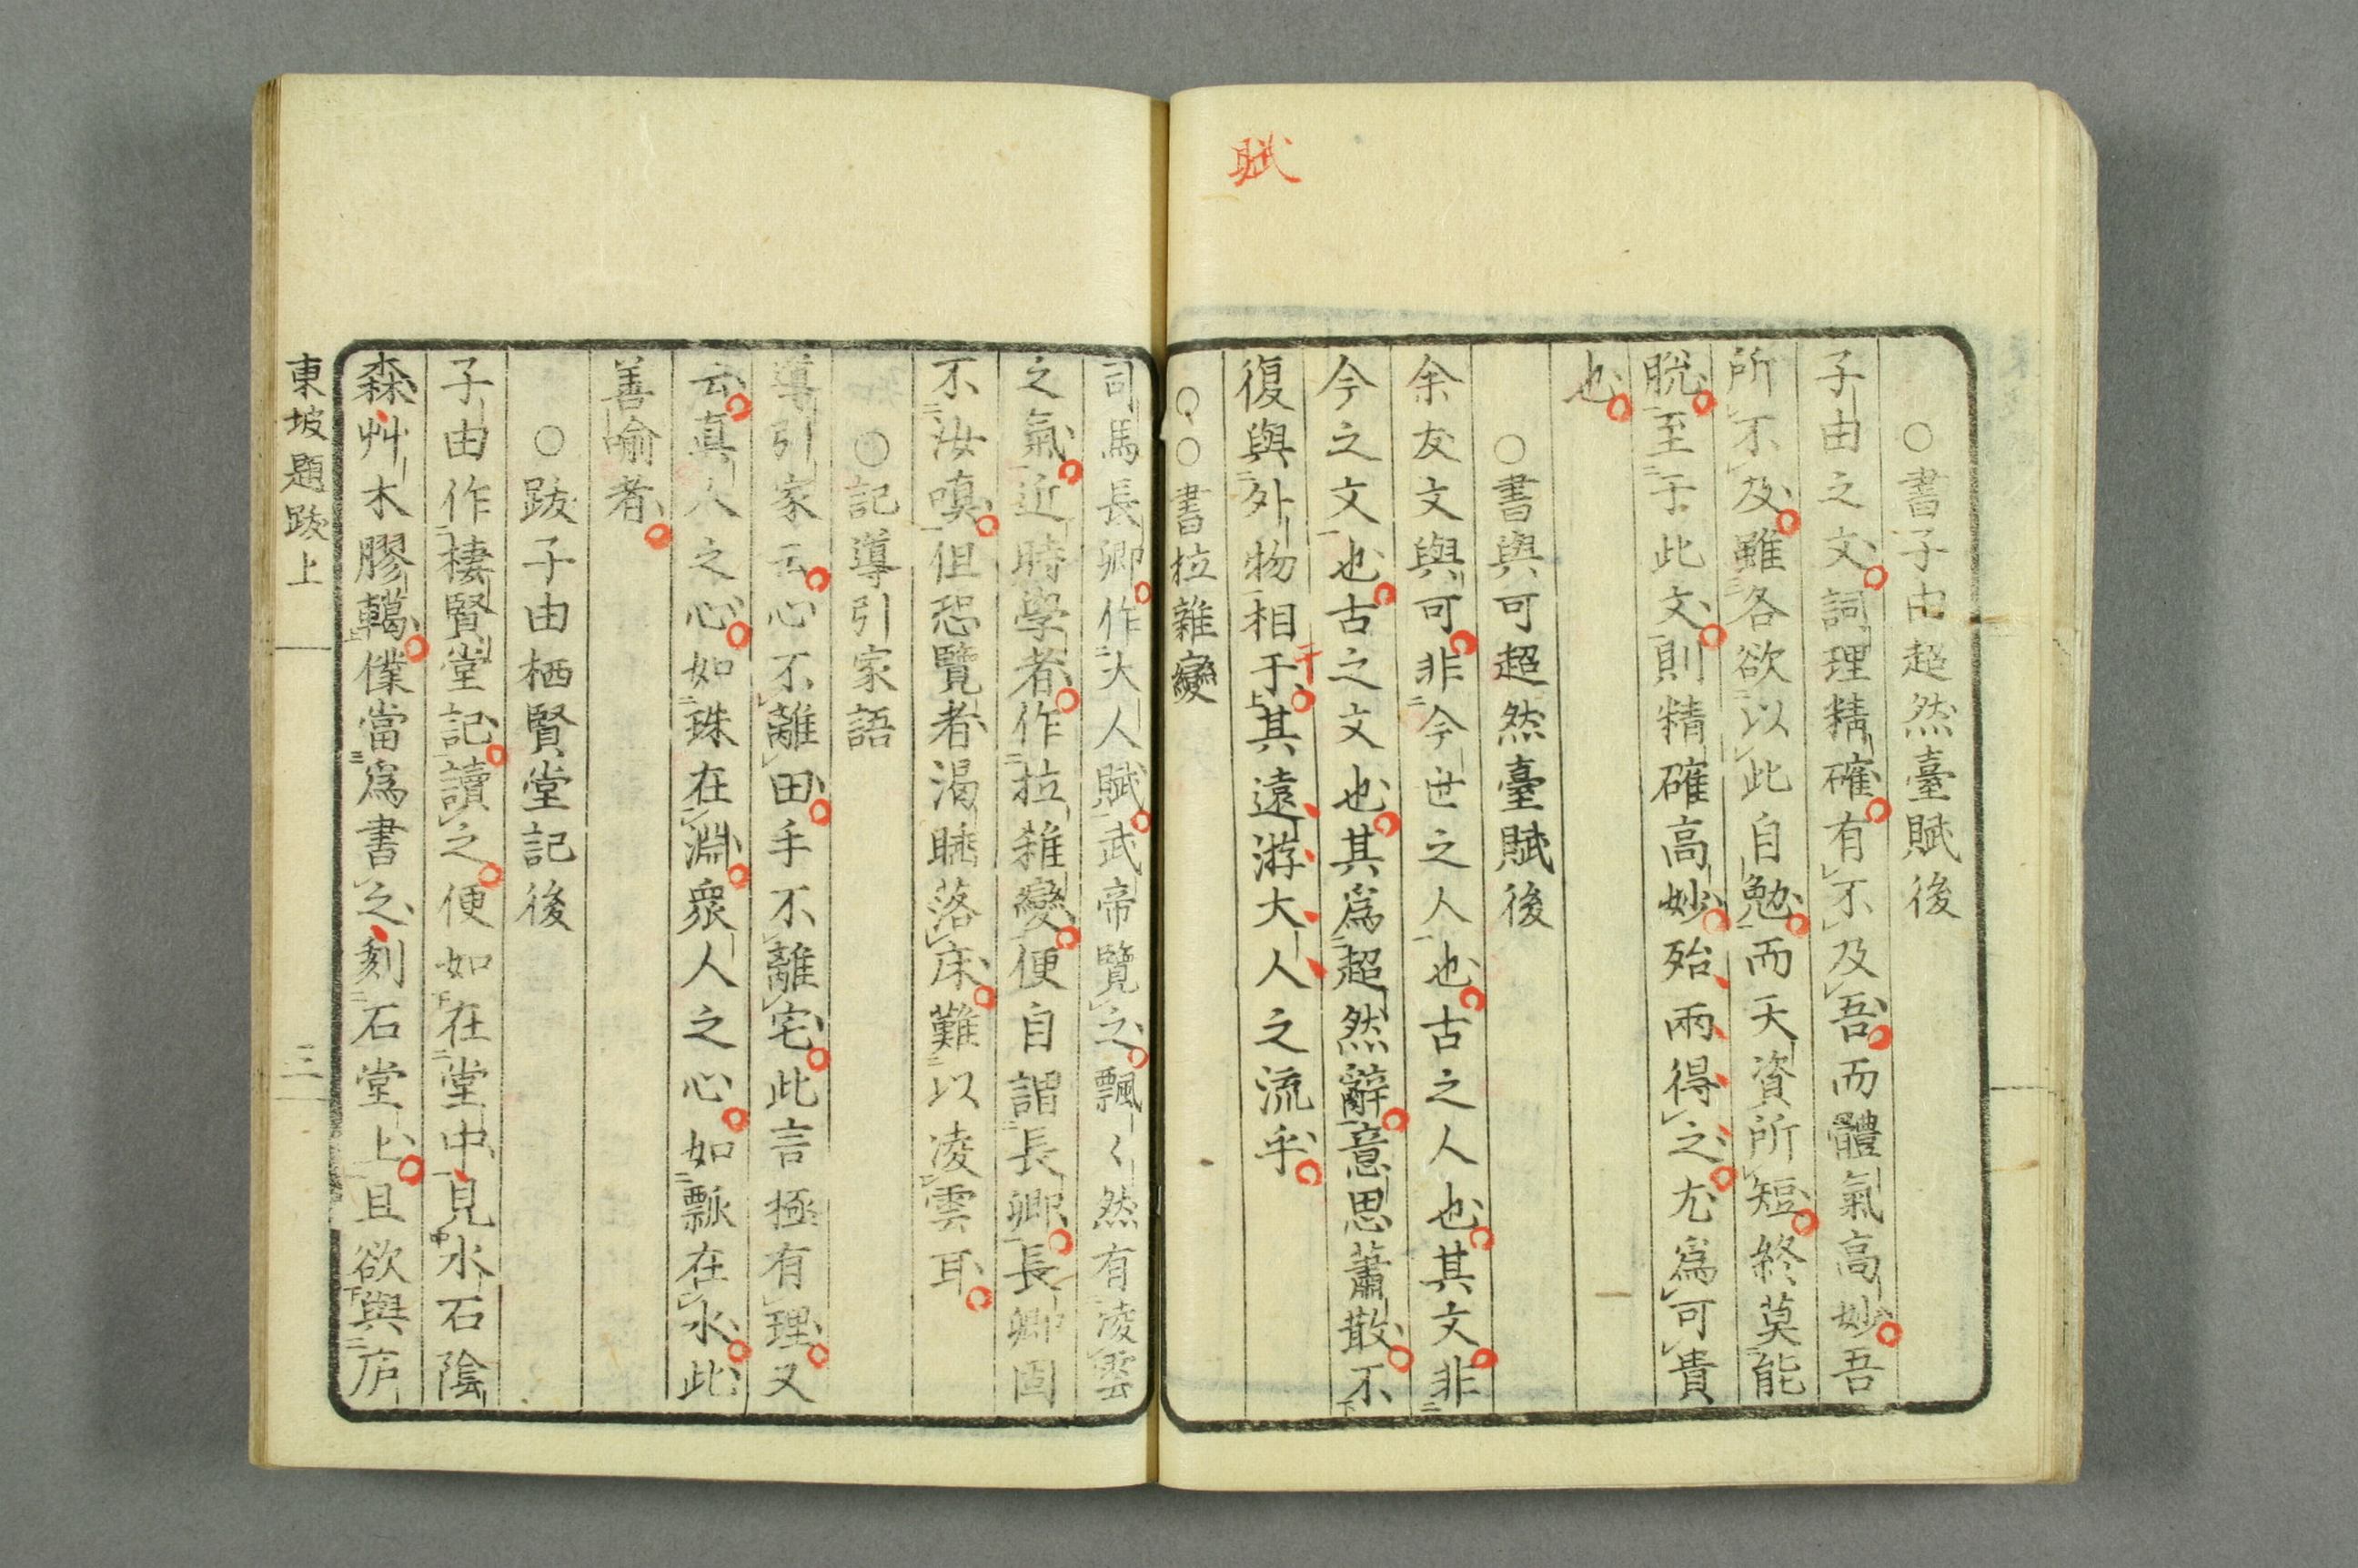 賦
○書子由超然臺賦後
子由之文詞理精確有不及吾而體氣高妙吾
所不及雖各欲以此自勉而天資所短終莫能
脫至于此文則精確高妙殆兩得之尤爲可貴
也
○書與可超然臺賦後
余友文與可非今世之人也古之人也其文非
今之文也古之文也其爲超然辭意思蕭散不
復與外物相于其遠游大人之流乎
干
○○書拉雜變
司馬長卿作大人賦武帝覽之飄〻然有淩雲
之氣近時學者作拉雜變便自謂長卿長卿固
不汝嗔但恐覽者渴睡落床難以凌雲耳
○記導引家語
導引家云心不離田手不離宅此言極有理又
云真人之心如珠在淵衆人之心如瓢在水此
善喻者
○跋子由栖賢堂記後
子由作棲賢堂記讀之便如在堂中見水石陰
森艸木膠轕僕當爲書之刻石堂上且欲與庐
東坡題跋上
三